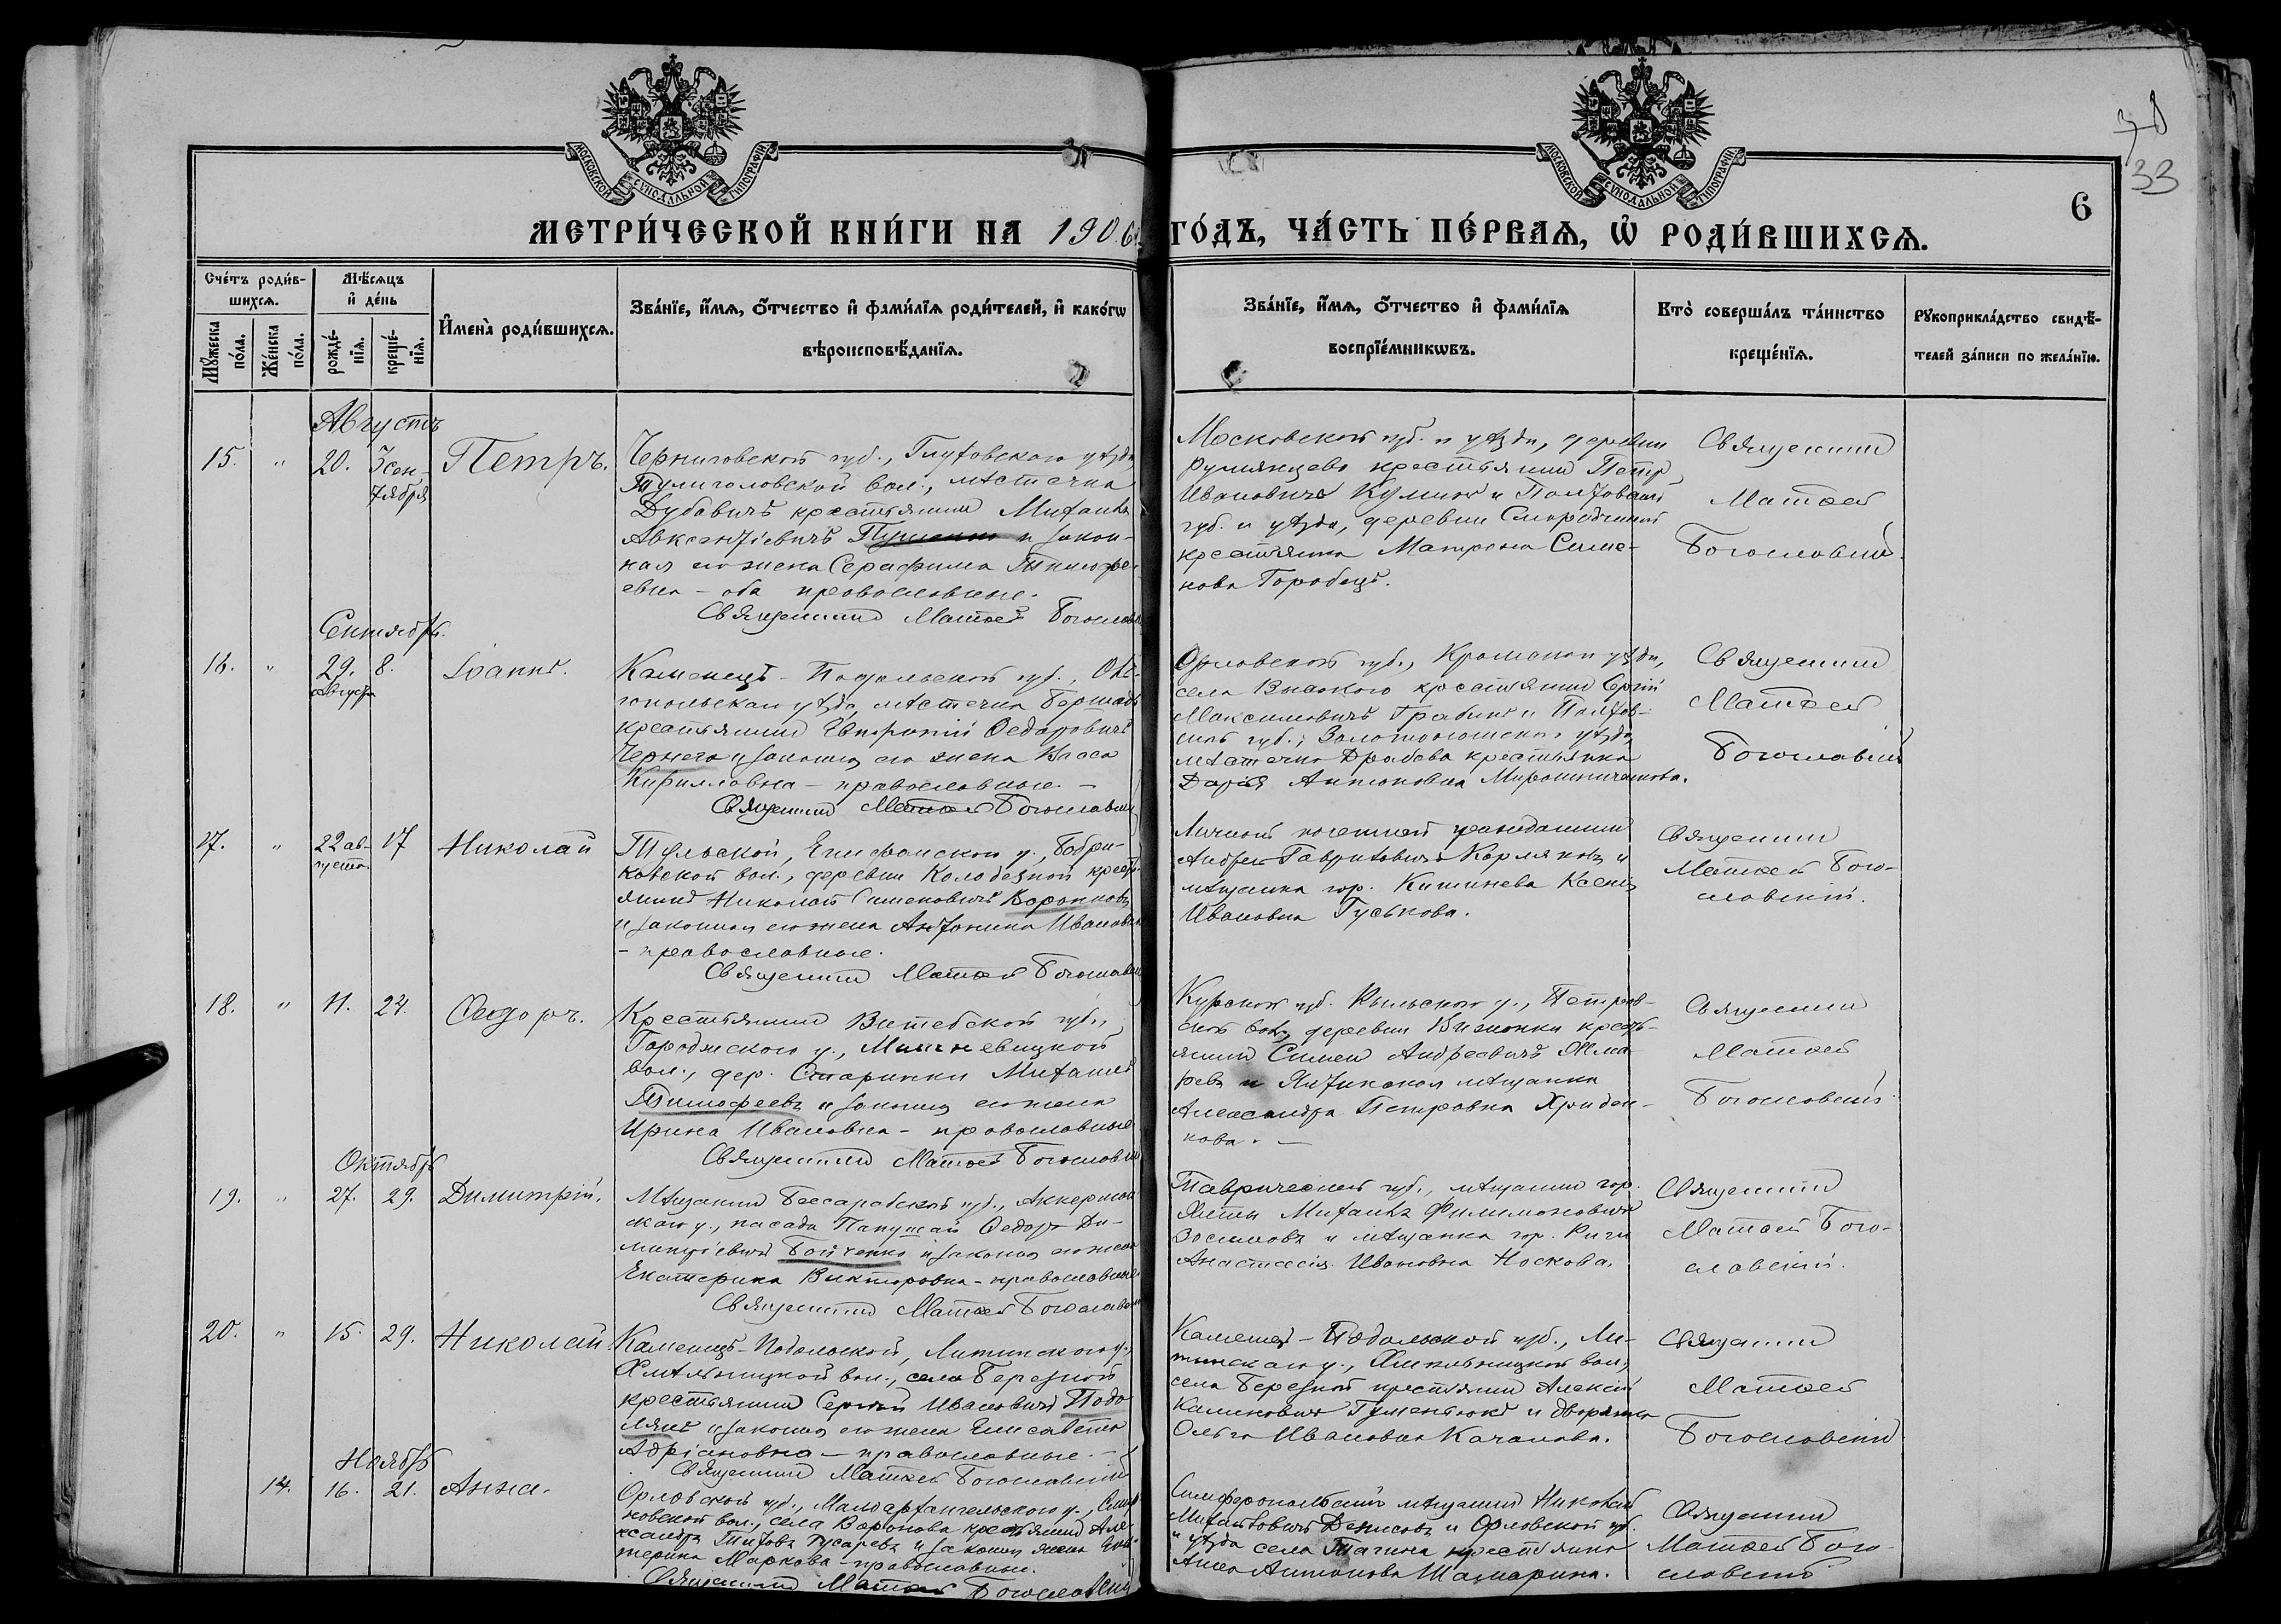 МОСКОВСКОЙ СУНОДАЛЬНОЙ ТИПОГРАФІИ
МОСКОВСКОЙ СУНОДАЛЬНОЙ ТИПОГРАФІИ
33
6
МЕТРИ́ЧЕСКОЙ КНИ́ГИ НА 1906
ГО́ДЪ, ЧА́СТЬ ПЕ́РВАѦ, Ѡ҆ РОДИ́ВШИХСѦ.
Сче́тъ роди́в-
шихсѧ.
Мѣ́сѧцъ
и҆ де́нь
Мꙋ́жеска по́ла.
Же́нска по́ла.
рожде́-нїѧ.
креще́-нїѧ.
И҆мена̀ роди́вшихсѧ.
Зва́нїе, и҆́мѧ, ѻ҆́тчество и҆ фами́лїѧ роди́телей, и҆ како́гѡ
вѣроисповѣ́данїѧ.
Зва́нїе, и҆́мѧ, ѻ҆́тчество и҆ фами́лїѧ
воспрїе́мникѡвъ.
Кто̀ соверша́лъ та́инство
креще́нїѧ.
Рꙋкоприкла́дство свидѣ́-
телей за́писи по жела́нїю.
Августъ
15. " 20. 3 сен-
тября
Петръ.
Черниговской губ., Глуховскаго уѣзда
Тулиголовской вол., мѣстечка
Дубовичъ крестьянинъ Михаилъ
Авксентіевичъ и закон-
ная его жена Серафима Тимофе-
евна - оба православные.
Священникъ Матѳей Богословскій
Московской губ. и уѣзда, деревни
Румянцево крестьянинъ Петръ
Ивановичъ и Полтавской
губ. и уѣзда, деревни
крестьянка Матрена Симе-
нова Горобецъ.
Священникъ
Матѳей
Богословскій.
Сентябрь.
16. " 29. 8.
августа
Іоаннъ.
Каменецъ-Подольской губ., Оль-
гопольскаго уѣзда, мѣстечка Бершадь
крестьянинъ Ѳедоровичъ
и законная его жена Васса
Кирилловна - православные. -
Священникъ Матѳей Богословскій
Орловской губ., Кромскаго уѣзда,
села Высокого крестьянинъ Сергій
Максимовичъ и Полтав-
ской губ., Золотоношскаго уѣзда,
мѣстечка Драбова крестьянка
Дарія Антоновна Мирошниченкова.
Священникъ
Матѳей
Богословскій
17. " 22 ав-
густа. 17
Николай
Тульской, Епифанской у., Бобри-
ковской вол., деревни Колодезной крест-
янинъ Николай Симеоновичъ Воронковъ
и законная его жена Антонина Ивановна
- православные.
Священникъ Матѳей Богословскій
Личный почетный гражданинъ
Андрей Гавриловичъ Корляковъ и
мѣщанка гор. Кишинева Ксенія
Ивановна Гуськова.
Священникъ
Матѳей Бого-
словскій.
18. " 11. 24.
Ѳедоръ.
Крестьянинъ Витебской губ.,
Городокского у.,
вол., дер. Старинки Михаилъ
Тимофеевъ и законная его жена
Ирина Ивановна - православные
Священникъ Матѳей Богословскій
Курской губ. Рыльского у., Петров-
ской вол., деревни кресть-
янинъ Симеонъ Андреевичъ
и Ялтинская мѣщанка
Александра Петровна
нова. -
Священникъ
Матѳей
Богословскій
Октябрь
19. " 27. 29.
Димитрій.
Мѣщанинъ Бессарабской губ., Аккерман-
скаго у., посада Папушой Ѳедоръ Ди-
митріевичъ Бойченко и законная его жена
Екатерина Викторовна - православные.
Священникъ Матѳей Богословскій
Таврической губ., мѣщанинъ гор.
Ялты Михаилъ Филимоновичъ
Зосимовъ и мѣщанка гор. Риги
Анастасія Ивановна Носкова.
Священникъ
Матѳей Бого-
словскій.
20. " 15. 29.
Николай
Каменецъ-Подольской, Литинского у.,
Хмѣльницкой вол., села Березной
крестьянинъ Сергѣй Ивановичъ Подо-
лянъ и законная его жена Елисавета
Адріановна - православные. -
Священникъ Матѳей Богословскій
Каменец-Подольской губ., Ли-
тинскаго у., Хмельницкой вол.,
села Березной крестьянинъ Алексій
и дворянка
Ольга Ивановна Качалова.
Священникъ
Матѳей
Богословскій
Ноябрь
14. 16. 21.
Анна.
Орловской губ., Малоархангельского у.,
новской вол., села Воронова крестьянинъ Але-
ксандръ Титовъ Гусаревъ и законная жена Ека-
терина Маркова - православные.
Священникъ Матѳей Богословскій
Симферопольскій мѣщанинъ Николай
Михайловичъ Денисовъ и Орловской губ.
и уѣзда села крестьянка
Анна Антонова Шамарина.
Священникъ
Матѳей Бого-
словскій